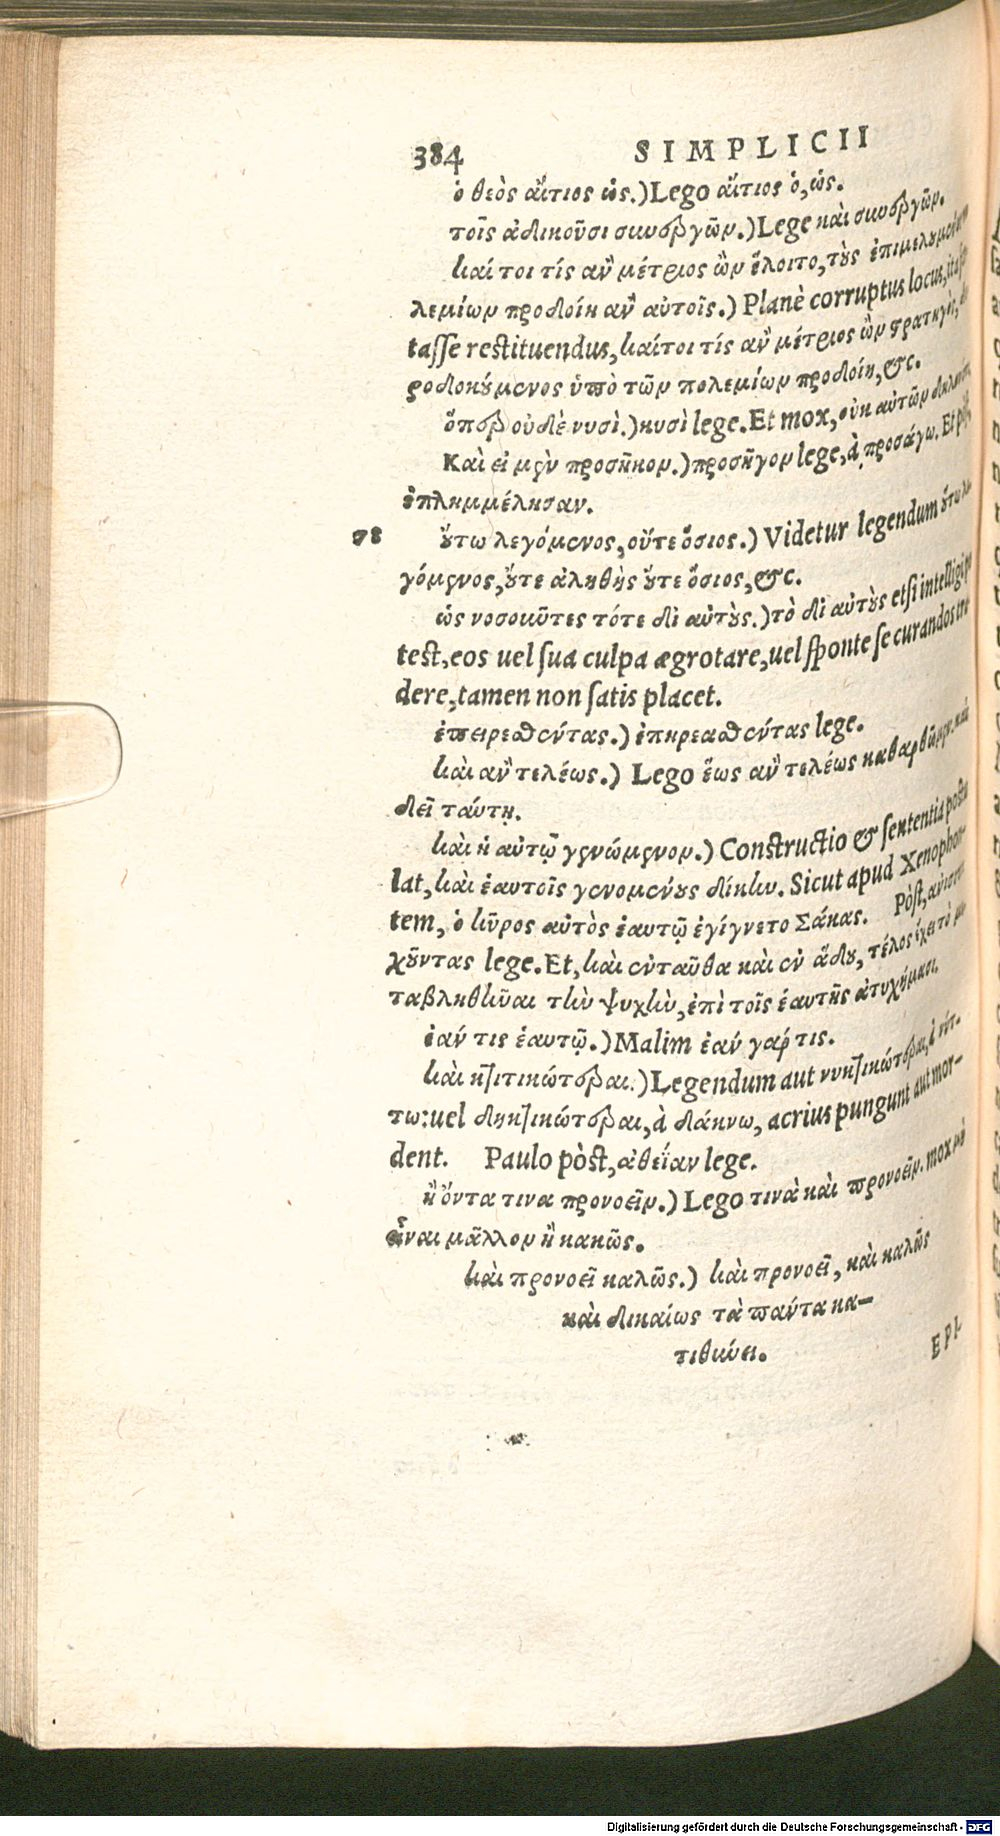 384 SIMPLICII
ὁ θεὸς αἴτιος ὡς.) Lego αἴτιος ὁ, ὡς.
τοῖς ἀδικοῦσι συνεργῶν.) Lege καὶ συνεργῶν.
καί τοι τίς ἂν μέτριος ὢν ἕλοιτο, τοὺς
λεμίων προδοίη ἂν αὐτοῖς.) Planè corruptus locus, ita for
tasse restituendus, καίτοι τίς ἂν μέτριος ὢν στρατηγὸς,
ροδοκούμενος ὑπὸ τῶν πολεμίων προδοίη, &c.
ὅπερ οὐδὲ νυσὶ.) κυσὶ lege. Et mox, οὐκ αὐτῶν
Καὶ εἰ μὲν προσῆκον.) προσῆγον lege, à προσάγω. Et
ἐπλημμέλησαν.
78 οὕτω λεγόμενος, οὔτε ὅσιος.) Videtur legendum οὕτω λε
γόμενος, οὔτε ἀληθὴς οὔτε ὅσιος, &c.
ὡς νοσοῦντες τότε δι αὐτοὺς.) τὸ δι αὐτοὺς etsi intelligi po
test, eos uel sua culpa ægrotare, uel sponte se curandos tra
dere, tamen non satis placet.
ἐπειρεαθέντας.) ἐπηρεαθέντας lege.
καὶ ἂν τελέως.) Lego ἕως ἂν τελέως καθαρθῶμεν. καὶ
δεῖ ταύτῃ.
καὶ ἡ αὐτῷ γενόμενον.) Constructio & sententia postu
lat, καὶ ἑαυτοῖς γενομένους δίκην. Sicut apud Xenophon-
tem, ὁ κῦρος αὐτὸς ἑαυτῷ ἐγίγνετο Σάκας. Pòst,
χοῦντας lege. Et, καὶ ἐνταῦθα καὶ ἐν ᾅδου, τέλος ἔχει τὸ με
ταβληθῆναι τὴν ψυχὴν, ἐπὶ τοῖς ἑαυτῆς ἀτυχήμασι.
ἐάν τις ἑαυτῷ.) Malim ἐάν γαρ τις.
καὶ κητικώτεραι.) Legendum aut νυκτικώτεραι, à νύτ-
τω: uel δηκτικώτεραι, à δάκνω, acrius pungunt aut mor-
dent. Paulo pòst, ἀθεΐαν lege.
ἢ ὄντα τινα προνοεῖν.) Lego τινὰ καὶ προνοεῖν. mox μὴ
εἶναι μᾶλλον ἢ κακῶς.
καὶ προνοεῖ καλῶς.) καὶ προνοεῖ, καὶ καλῶς
καὶ δικαίως τὰ πάντα κα-
τιθύνει.
EPI-
Digitalisierung gefördert durch die Deutsche Forschungsgemeinschaft - DFG